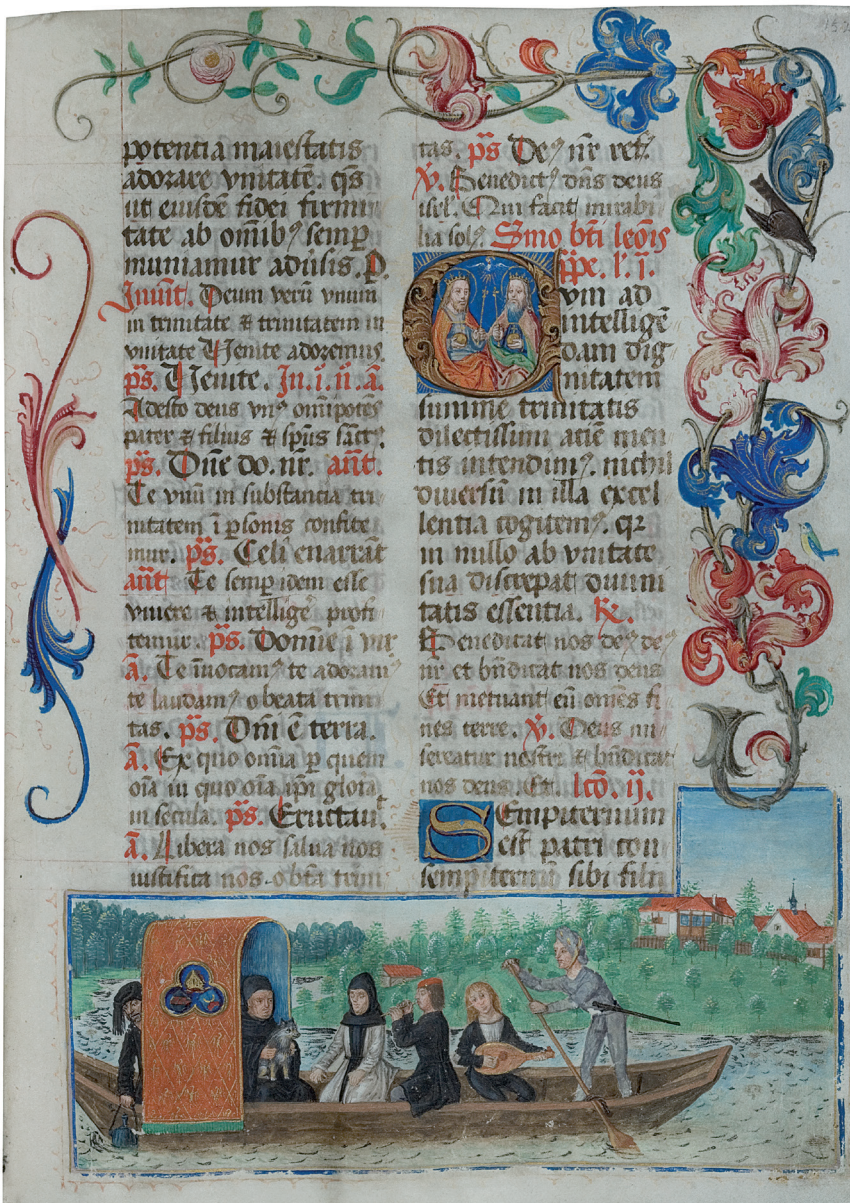 potentia maiestatis
adorare vnitatē. qs̄
ut eiusdē fidei firmi
tate ab om̄ibꝰ semꝑ
muniamur aduīsis. P.
Inuit̄. Deum verū vnum
in trinitate & trinitatem in
vnitate Uenite adoremus
ps̄. Uenite. In. i. ii. a.
Adesto deus vnꝰ om̄ipotēs
pater & filius & sp̄us sāct̄.
ps̄. Dn̄e do. nr̄. ant̄.
Te vnū in substancia tri
nitatem ī ꝑsonis confite
mur. ps̄. Celi enarrāt
ant̄ Te semꝑ idem esse
viuere & intelligē profi
temur. ps̄. Domīe ī vir
a. Te īuocamꝰ te adoramꝰ
te laudamꝰ o beata trini
tas. ps̄. Dn̄i ē terra.
a. Ex quo om̄ia ꝑ quem
oīa in quo oīa ip̄i gloīa
in secula. ps̄. Eructau.
a. Libera nos salua nos
iustifica nos. o btā trini
tas. ps̄ Deꝰ nr̄ ref.
V. Benedictꝰ dn̄s deus
isrl. Qui facit mirabi
lia solꝰ. Smo bt̄i leōis
pp̄e. l. i.
Qvm ad
intelligē
dam dig
nitatem
summe trinitatis
dilectissimi aciē men
tis intendimꝰ. nichil
diuersū in illa excel
lentia cogitemꝰ. qꝛ
in nullo ab vnitate
sua discrepat diuini
tatis essentia. R.
Benedicat nos deꝰ deꝰ
nr̄ et bn̄dicat nos deus
Et metuant eū om̄es fi
nes terre. V. Deus mi
sereatur nostri & bn̄dicat
nos deus. Et. lcō. ii.
SEmpiternum
est patri coīn
sempiternū sibi filiū